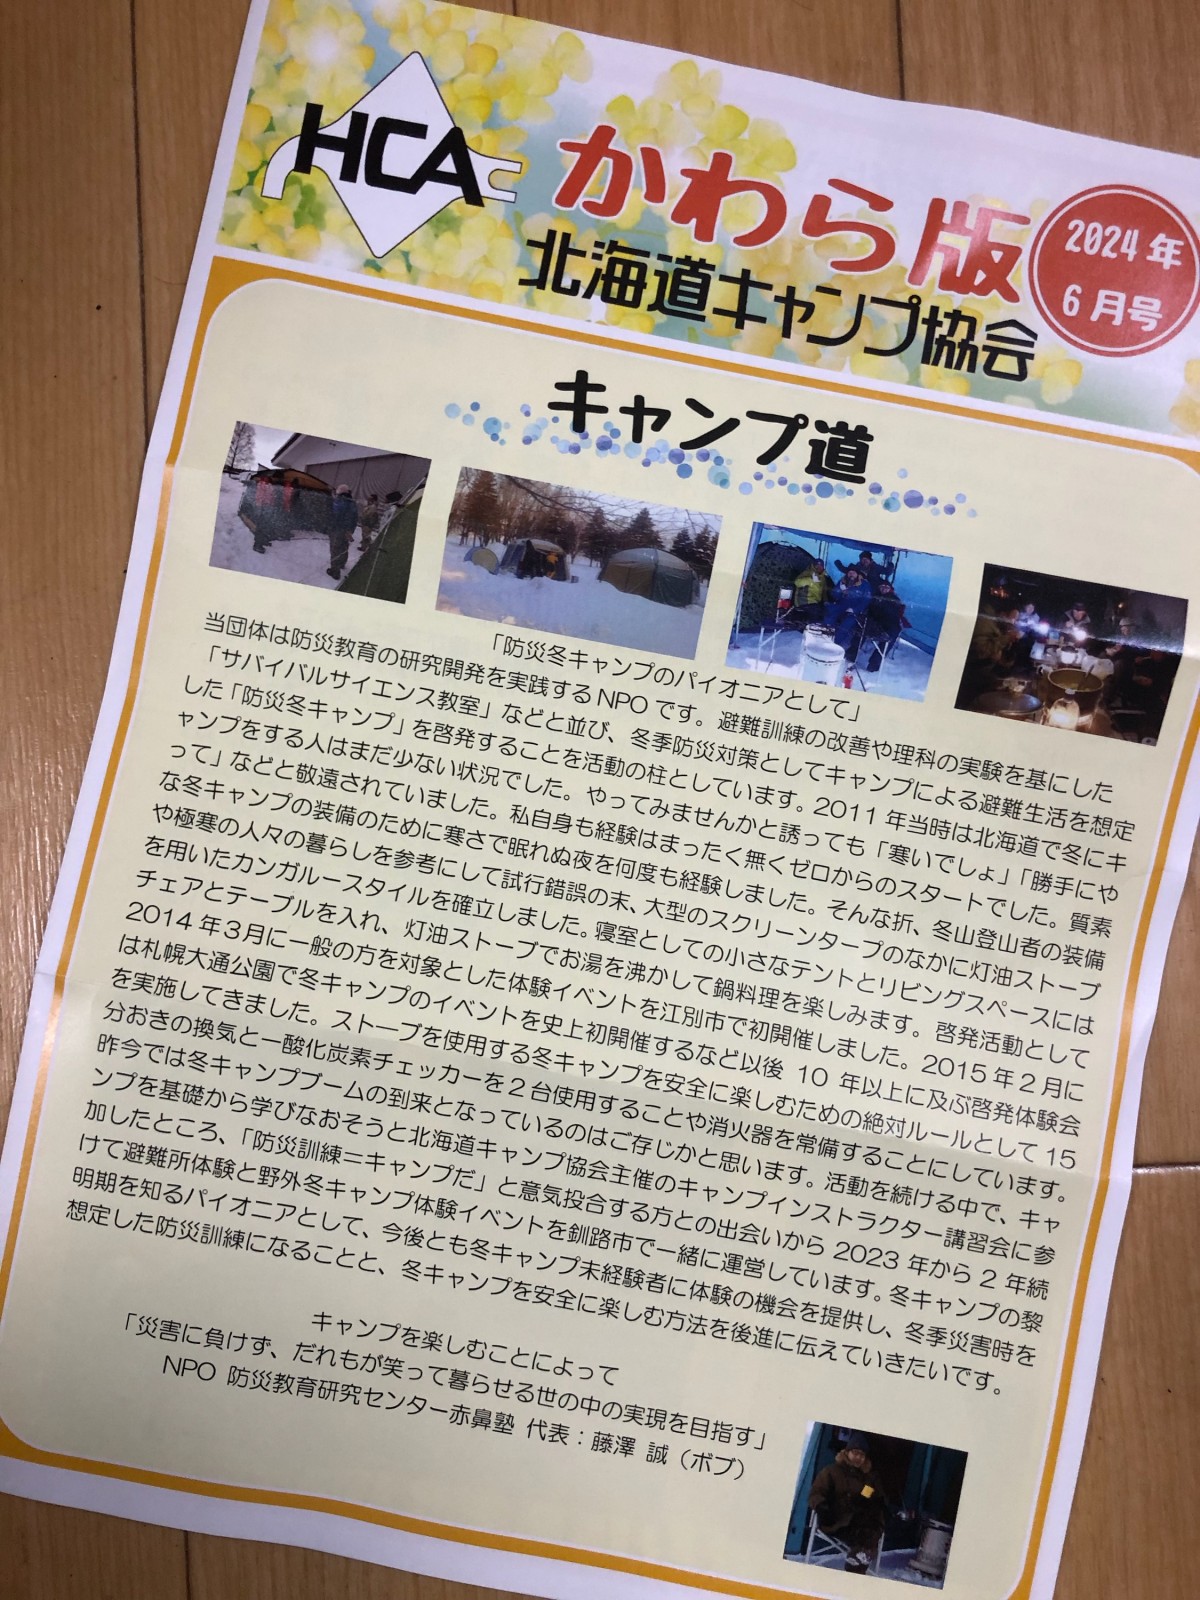 HCA
かわら版
2024年
6月号
北海道キャンプ協会
キャンプ道
「防災冬キャンプのパイオニアとして」
当団体は防災教育の研究開発を実践するNPOです。避難訓練の改善や理科の実験を基にした
「サバイバルサイエンス教室」などと並び、冬季防災対策としてキャンプによる避難生活を想定
した「防災冬キャンプ」を啓発することを活動の柱としています。2011年当時は北海道で冬にキ
ャンプをする人はまだ少ない状況でした。やってみませんかと誘っても「寒いでしょ」「勝手にや
って」などと敬遠されていました。私自身も経験はまったく無くゼロからのスタートでした。質素
な冬キャンプの装備のために寒さで眠れぬ夜を何度も経験しました。そんな折、冬山登山者の装備
や極寒の人々の暮らしを参考にして試行錯誤の末、大型のスクリーンタープのなかに灯油ストーブ
を用いたカンガルースタイルを確立しました。寝室としての小さなテントとリビングスペースには
チェアとテーブルを入れ、灯油ストーブでお湯を沸かして鍋料理を楽しみます。啓発活動として
2014年3月に一般の方を対象とした体験イベントを江別市で初開催しました。2015年2月に
は札幌大通公園で冬キャンプのイベントを史上初開催するなど以後 10 年以上に及ぶ啓発体験会
を実施してきました。ストーブを使用する冬キャンプを安全に楽しむための絶対ルールとして15
分おきの換気と一酸化炭素チェッカーを2台使用することや消火器を常備することにしています。
昨今では冬キャンプブームの到来となっているのはご存じかと思います。活動を続ける中で、キャ
ンプを基礎から学びなおそうと北海道キャンプ協会主催のキャンプインストラクター講習会に参
加したところ、「防災訓練＝キャンプだ」と意気投合する方との出会いから 2023 年から 2 年続
けて避難所体験と野外冬キャンプ体験イベントを釧路市で一緒に運営しています。冬キャンプの黎
明期を知るパイオニアとして、今後とも冬キャンプ未経験者に体験の機会を提供し、冬季災害時を
想定した防災訓練になることと、冬キャンプを安全に楽しむ方法を後進に伝えていきたいです。
キャンプを楽しむことによって
「災害に負けず、だれもが笑って暮らせる世の中の実現を目指す」
NPO 防災教育研究センター赤鼻塾 代表：藤澤 誠（ボブ）